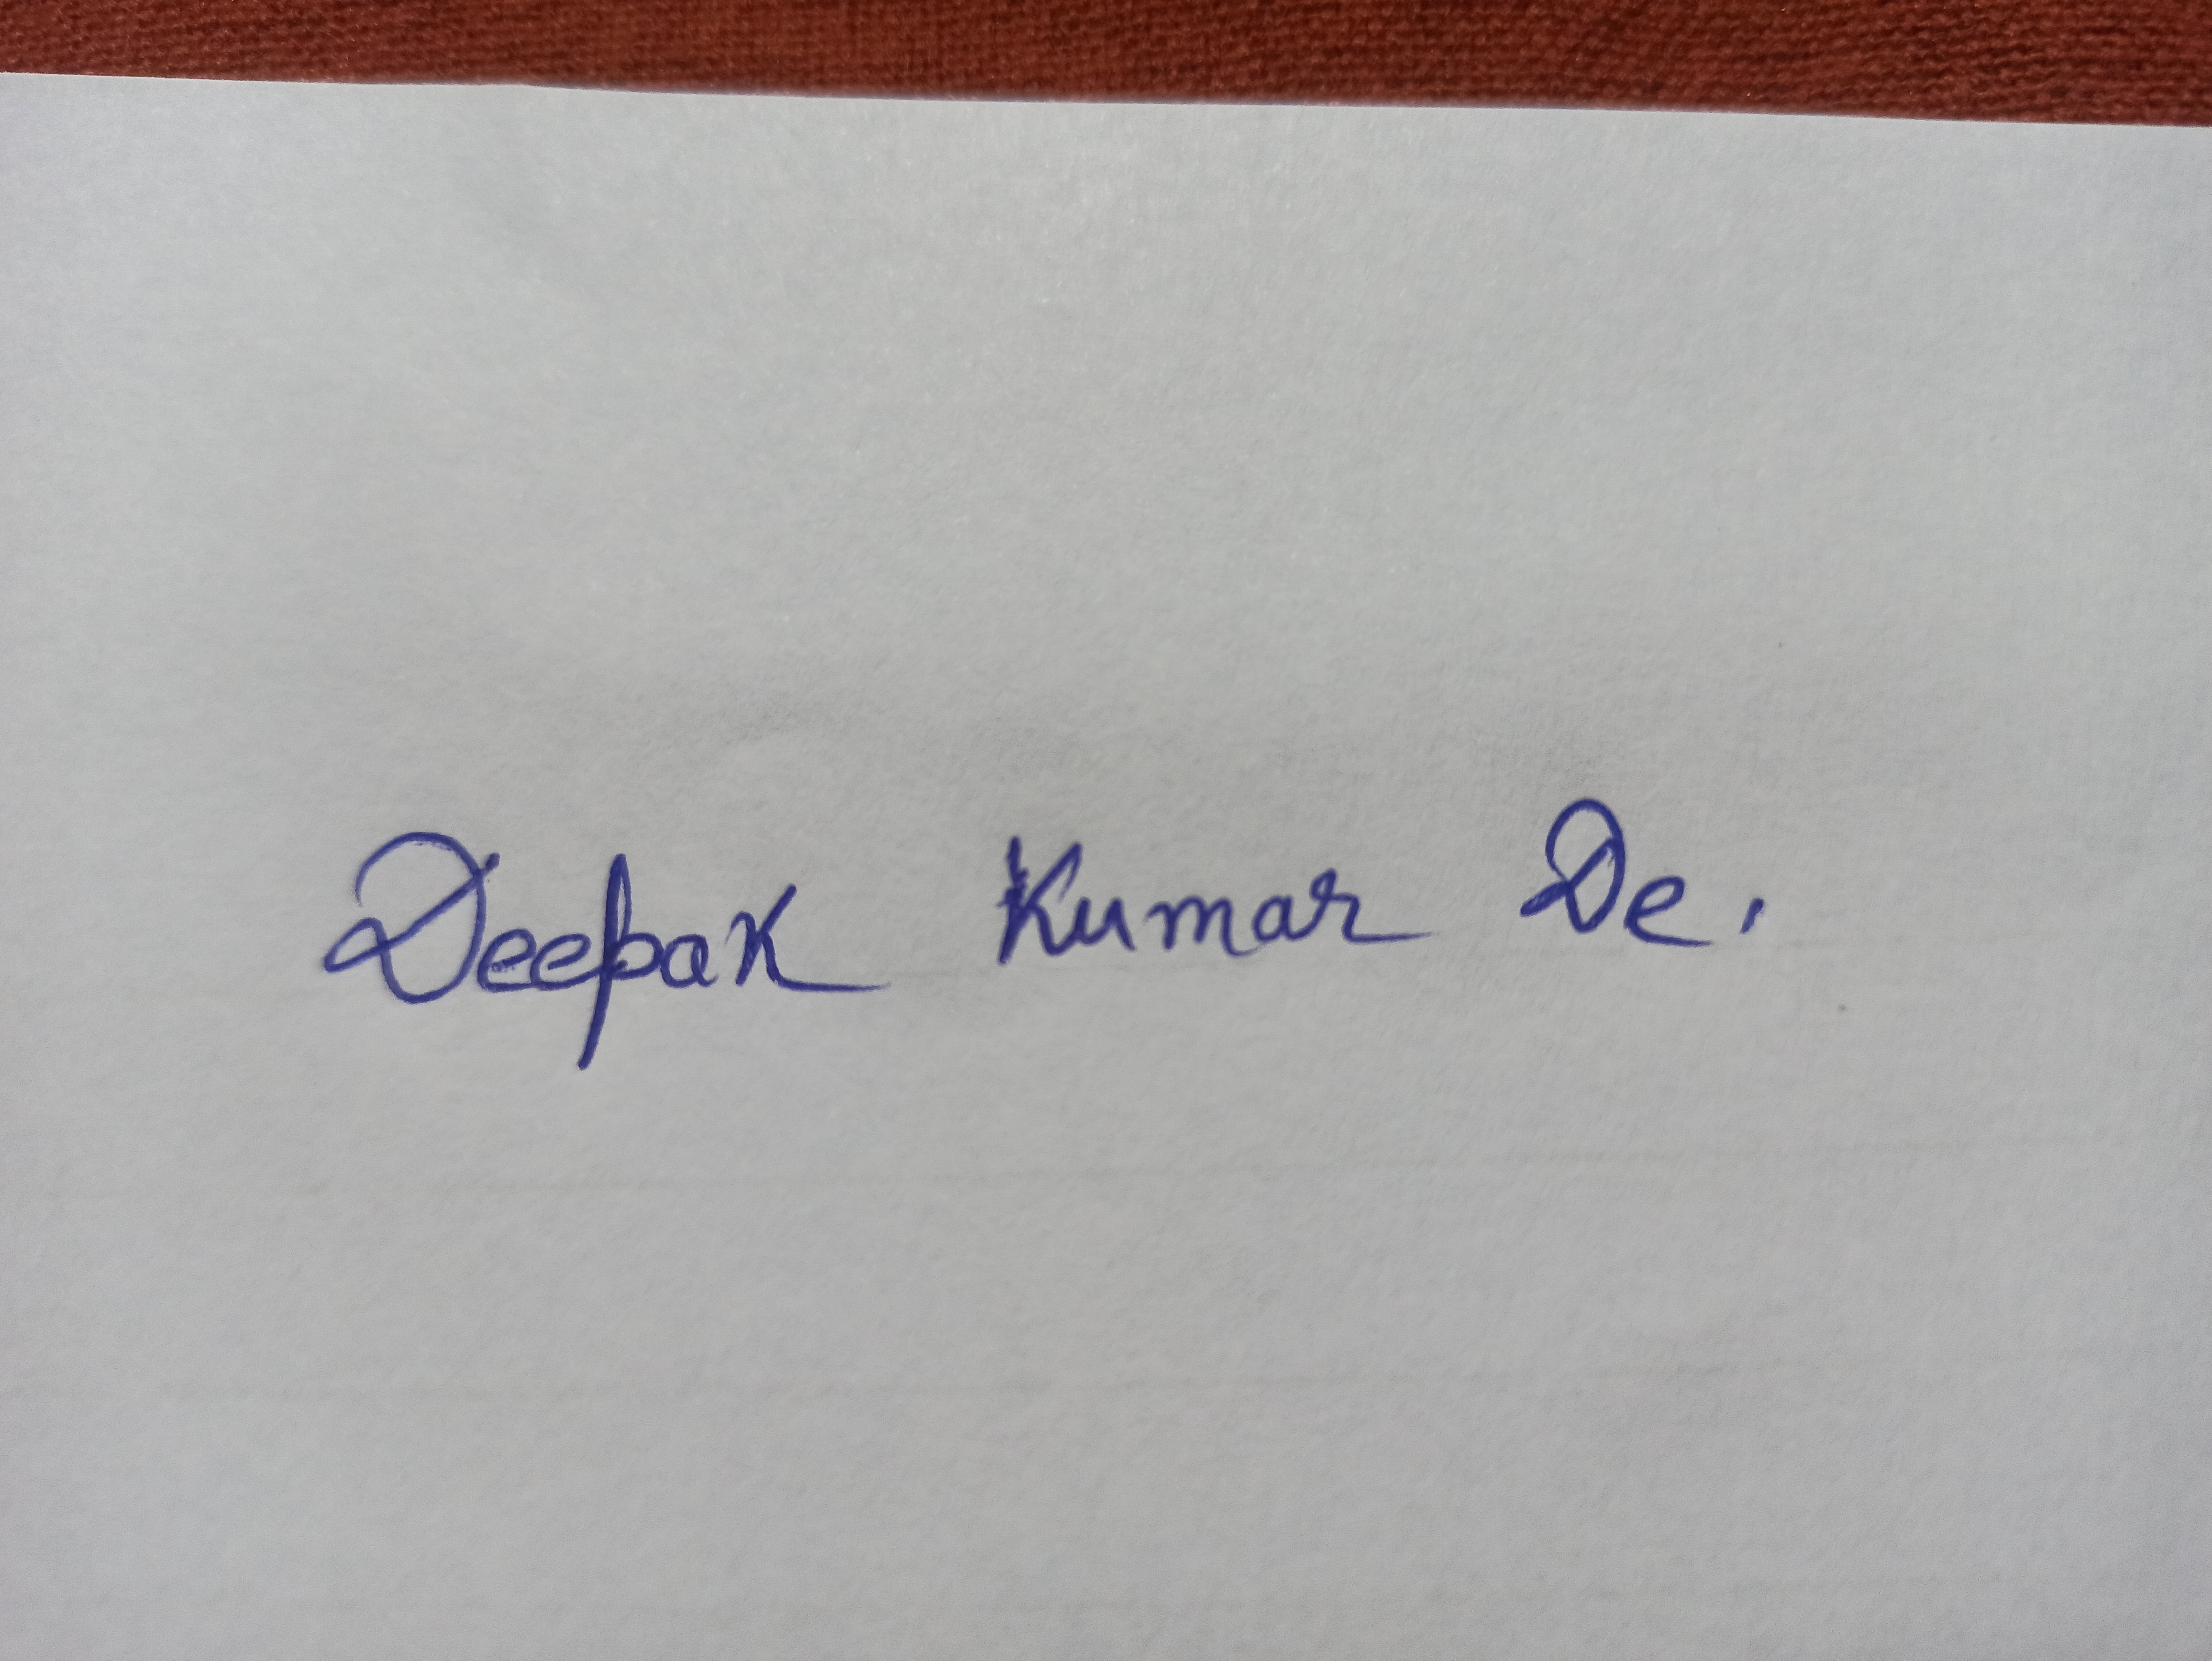 Deepak Kumar De.